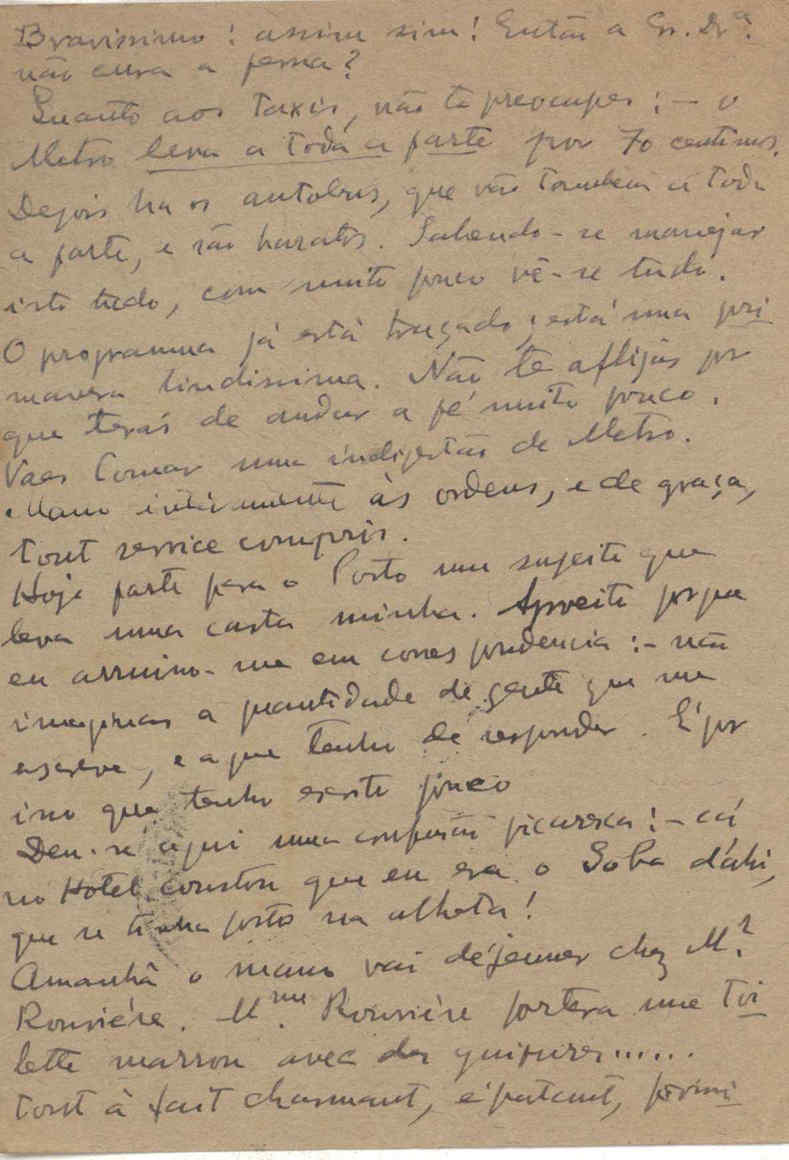 Bravissimo! assim sim! Então a Sr. Drª.
não cura a perna?
Quanto aos taxis, não te preocupes: — o
Metro leva a toda a parte por 70 centimos.
Depois ha os autobus, que vão tambem a toda
a parte, e são baratos. Sabendo-se manejar
isto tudo, com muito pouco vê-se tudo.
O programma já está traçado; está uma pri
mavera lindissima. Não te aflijas por
que terás de andar a pé muito pouco.
Vaes tomar uma indigestão de Metro.
Mano inteiramente às ordens, e de graça,
tout service compris.
Hoje parte para o Porto um sugeito que
leva uma carta minha. Aproveito porque
eu arruino-me em correspondencia: — não
imaginas a quantidade de gente que me
escreve, e a que tenho de responder. É por
isso que tenho escrito pouco
Deu-se aqui uma confusão picaresca: — cá
no Hotel constou que eu era o Soba d'ahi,
que se tinha posto na alheta!
Amanhã o mano vai déjeuner chez Mr.
Rouvière. Mme. Rouvière portera une toi
lette marron avec des guipures......
tout à fait charmant, épatant, formi